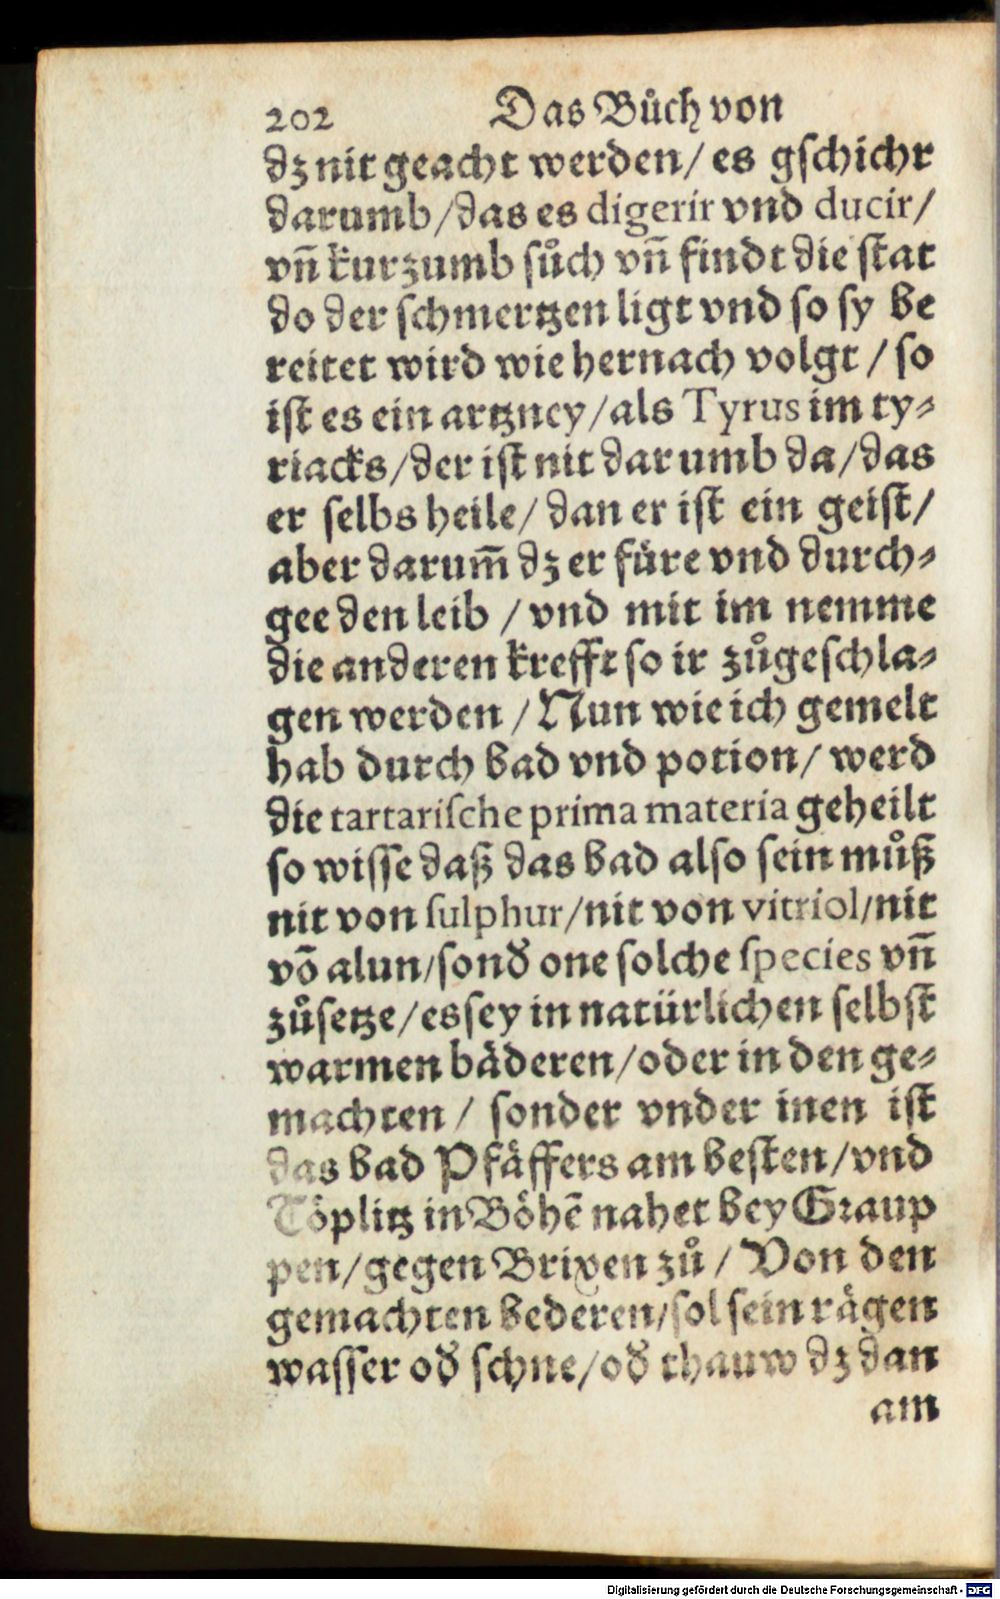 202 Das Bůch von
dz nit geacht werden/ es gschicht
darumb/das es digerir vnd ducir/
vn̄ kurzumb sůch vn̄ findt die stat
do der schmertzen ligt vnd so sy be
reitet wird wie hernach volgt / so
ist es ein artzney/als Tyrus im ty⸗
riacks/der ist nit darumb da/das
er selbs heile/ dan er ist ein geist/
aber darum̄ dz er füre vnd durch⸗
gee den leib / vnd mit im nemme
die anderen krefft so ir zůgeschla⸗
gen werden / Nun wie ich gemelt
hab durch bad vnd potion/ werd
die tartarische prima materia geheilt
so wisse daß das bad also sein můß
nit von sulphur/nit von vitriol/nit
vō alun/sond̄ one solche species vn̄
zůsetze/es sey in natürlichen selbst
warmen bäderen/oder in den ge⸗
machten / sonder vnder inen ist
das bad Pfäffers am besten/vnd
Töplitz in Böhē nahet bey Graup
pen/gegen Brixen zů / Von den
gemachten bederen/sol sein rägen
wasser od̄ schne/od̄ thauw dz dan
am
Digitalisierung gefördert durch die Deutsche Forschungsgemeinschaft - DFG